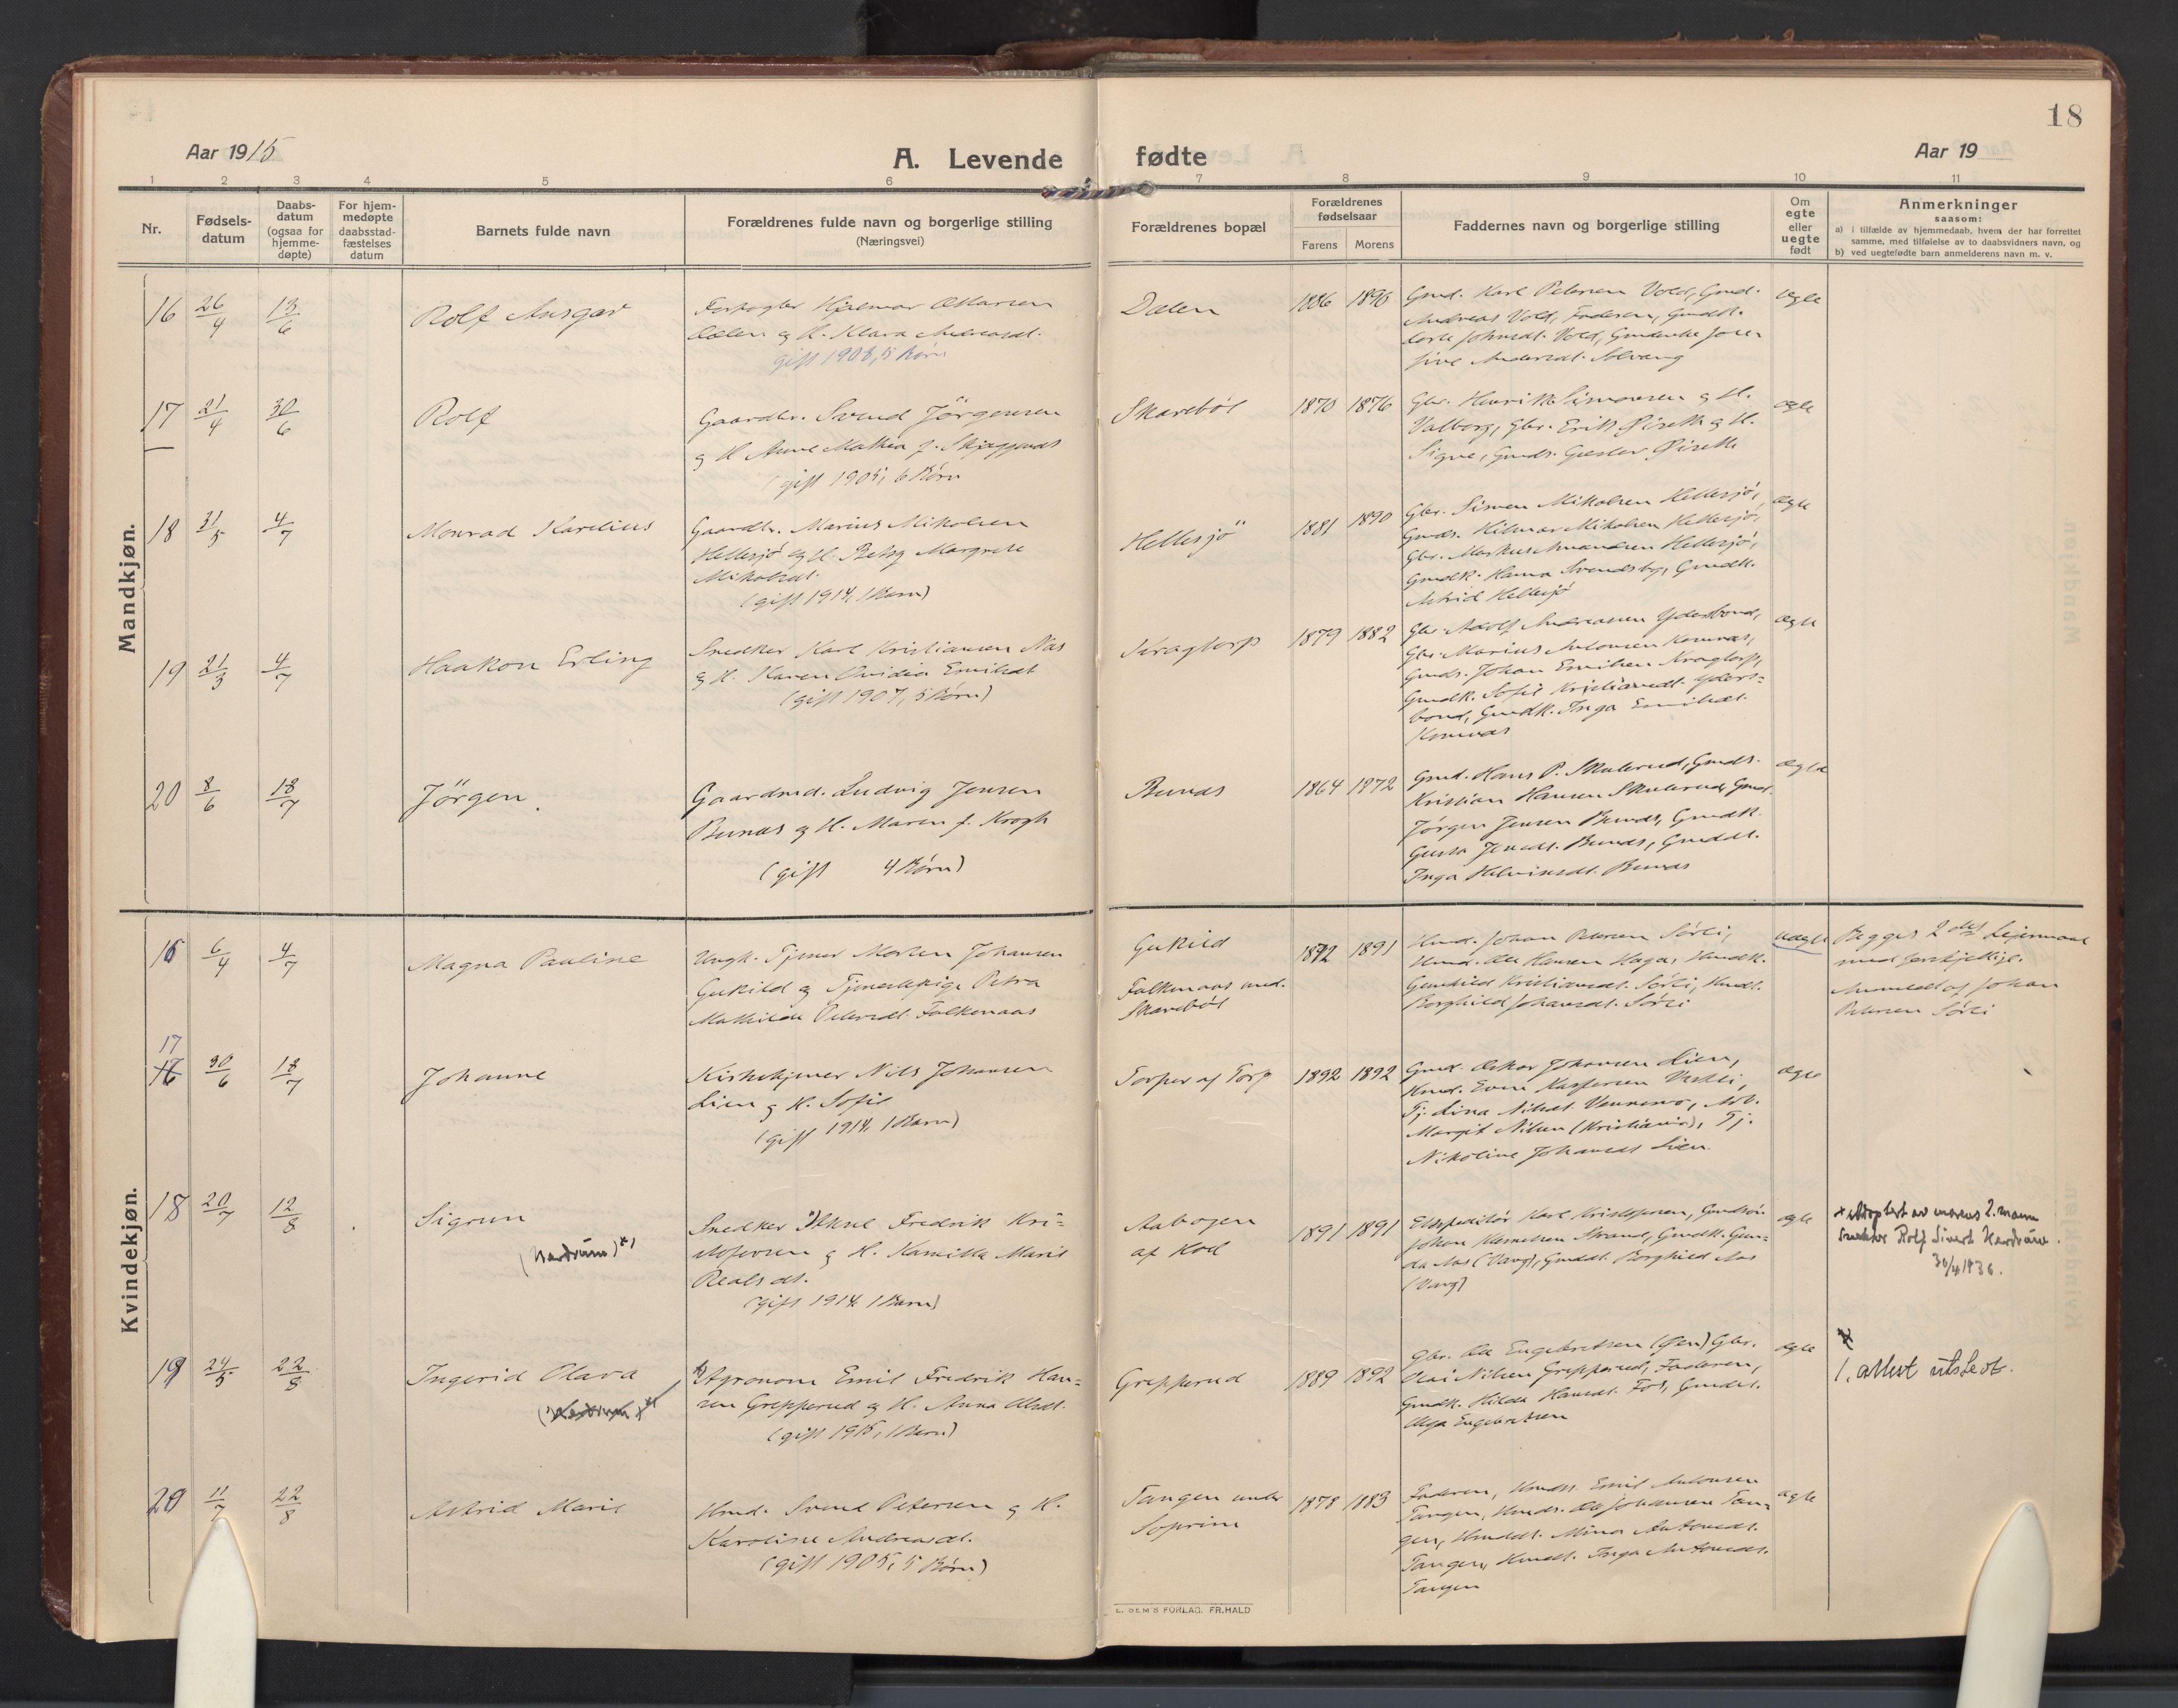 18
Aar 1915
A. Levende fødte
Aar 19
1 2 3 4 5 6 7 8 9 10 11
Nr.
Fødsels-
datum
Daabs-
datum
(ogsaa for
hjemme-
døpte)
For hjem-
medøpte
daabsstad-
fæstelses
datum
Barnets fulde navn
Forældrenes fulde navn og borgerlige stilling
(Næringsvei)
Forældrenes bopæl
Forældrenes
fødselsaar
Farens Morens
Faddernes navn og borgerlige stilling
Om
egte
eller
uegte
født
Anmerkninger
saasom:
a) i tilfælde av hjemmedaab, hvem der har forrettet
samme, med tilføielse av to daabsvidners navn, og
b) ved uegtefødte barn anmelderens navn m. v.
Mandkjøn.
16 26/4 13/6
Rolf Ansgar
Hjelmar
Dalen og H. Klara Andreasdt.
gift 1908, 5 Børn
Dalen
1886 1890
Gmd. Karl Petersen Vold, Gmd.
Andreas Vold, Faderen, Gmdk.
Johnsdt. Vold,
Andersdt. Solvang
egte
17 21/4 30/6
Rolf
Gaardbr. Svend Jörgensen
og H. Anne Mathea f.
(gift 1905, 6 Børn
Skarebøl
1870 1876
Gbr. Henrik Simonsen og H.
Valborg, Gbr. Erik og H.
Signe, Gmds.
egte
18 31/5 4/7
Monrad Karelius
Gaardbr. Marius Mikalsen
Hellesjø og H. Betsy Margrete
Mikalsdt.
(gift 1914, 1 Barn)
Hellesjö
1881 1890
Gbr. Simen Mikalsen Hellesjø,
Gmds. Hilmar Mikalsen Hellesjø,
Gbr. Hellesjø,
Gmdk. Hanna Svendsby, Gmdk.
Astrid Hellesjø
ægte
19 21/3 4/7
Haakon Erling
Snedker Karl Kristiansen Næs
og H. Karen Ovidia Emilsdt
(gift 1907, 5 Børn)
Kragtorp
1879 1882
Gbr. Adolf Andreasen Ydersbond,
Gbr. Marius Antonsen Komnæs,
Gmds. Johan Emilsen Kragtorp,
Gmdk. Sofie Kristiansdt. Yders-
bond, Gmdk. Inga Emilsdt.
Komnæs
ægte
20 8/6 18/7
Jörgen.
Gaardmd. Ludvig Jensen
Bunæs og H. Maren f. Krogh
(gift 4 Børn)
Bunæs
1864 1872
Gmd. Hans P. Skulerud, Gmds.
Kristian Hansen Skulerud, Gmd.
Jørgen Jensen Bunæs, Gmdk.
Gusta Jensdt. Bunæs, Gmddt.
Inga Helvinsdt. Bunæs
ægte
Kvindekjøn.
16 6/4 4/7
Magna Pauline
Ungk. Tjener Morten Johansen
Gukild og Tjenestepige Petra
Mathilde Petersdt. Falkenaas
Gukild
Falkenaas und.
Skarebøl
1892 1891
Hmd. Johan Petersen Sørli,
Hmd. Ole Hansen Haga, Hmdk.
Gunhild Kristiansdt. Sørli, Hmdt.
Borghild Johansdt. Sørli
uægte
Begges 2det Leiermaal
med forskjellige.
Anmeldt af Johan
Petersen Sørli
17
16 30/6 18/7
Johanne
Kirketjener Nils Johansen
Lien og H. Sofie
(gift 1914, 1 Barn)
Torper af Torp
1892 1892
Gmd. Oskar Johansen Lien,
Hmd. Even Kaspersen
Tj. Lina Nilsdt. Vennemo,
Margit Nilsen (Kristiania), Tj.
Nikoline Johansdt. Lien.
ægte
18 20/7 12/8
Sigrun
(Nerdrum)*)
Snedker Aksel Fredrik Kri-
stofersen og H. Kamilla Marie
(gift 1914, 1 Barn)
Aabogen
af Kod
1891 1891
Ekspeditør Karl Kristofersen, Gmdsøn
Johan Strand, Gmdk. Gun-
da Aas (Vang), Gmddt. Borghild Aas
(Vang)
egte
* adoptert av morens 2. mann
snekker Rolf Sivert Nerdrum.
30/4 1936.
19 24/5 22/8
Ingerid Olava
(Nerdrum)*)
*) Agronom Emil Fredrik Han-
sen Grepperud og H. Anna Olsdt.
(gift 1915, 1 Barn)
Grepperud
1889 1892
Gbr. Ole Engebretsen (Øen) Gbr.
Olai Nilsen Grepperud, Faderen,
Gmdk. Hilda Hansdt. Fos, Gmddt.
Olga Engebretsen
ægte
1. attest utstedt.
20 11/7 22/8
Astrid Marie
Hmd. Svend Petersen og H.
Karoline Andreasdt.
(gift 1905, 5 Børn)
Tangen under
Soprim
1878 1883
Faderen, Hmds. Emil Antonsen
Tangen, Hmds. Ole Johansen Tan-
gen, Hmddt. Mina Antonsdt.
Tangen, Hmdt. Inga Antonsdt.
Tangen
ægte
E. SEM'S FORLAG. FR.HALD